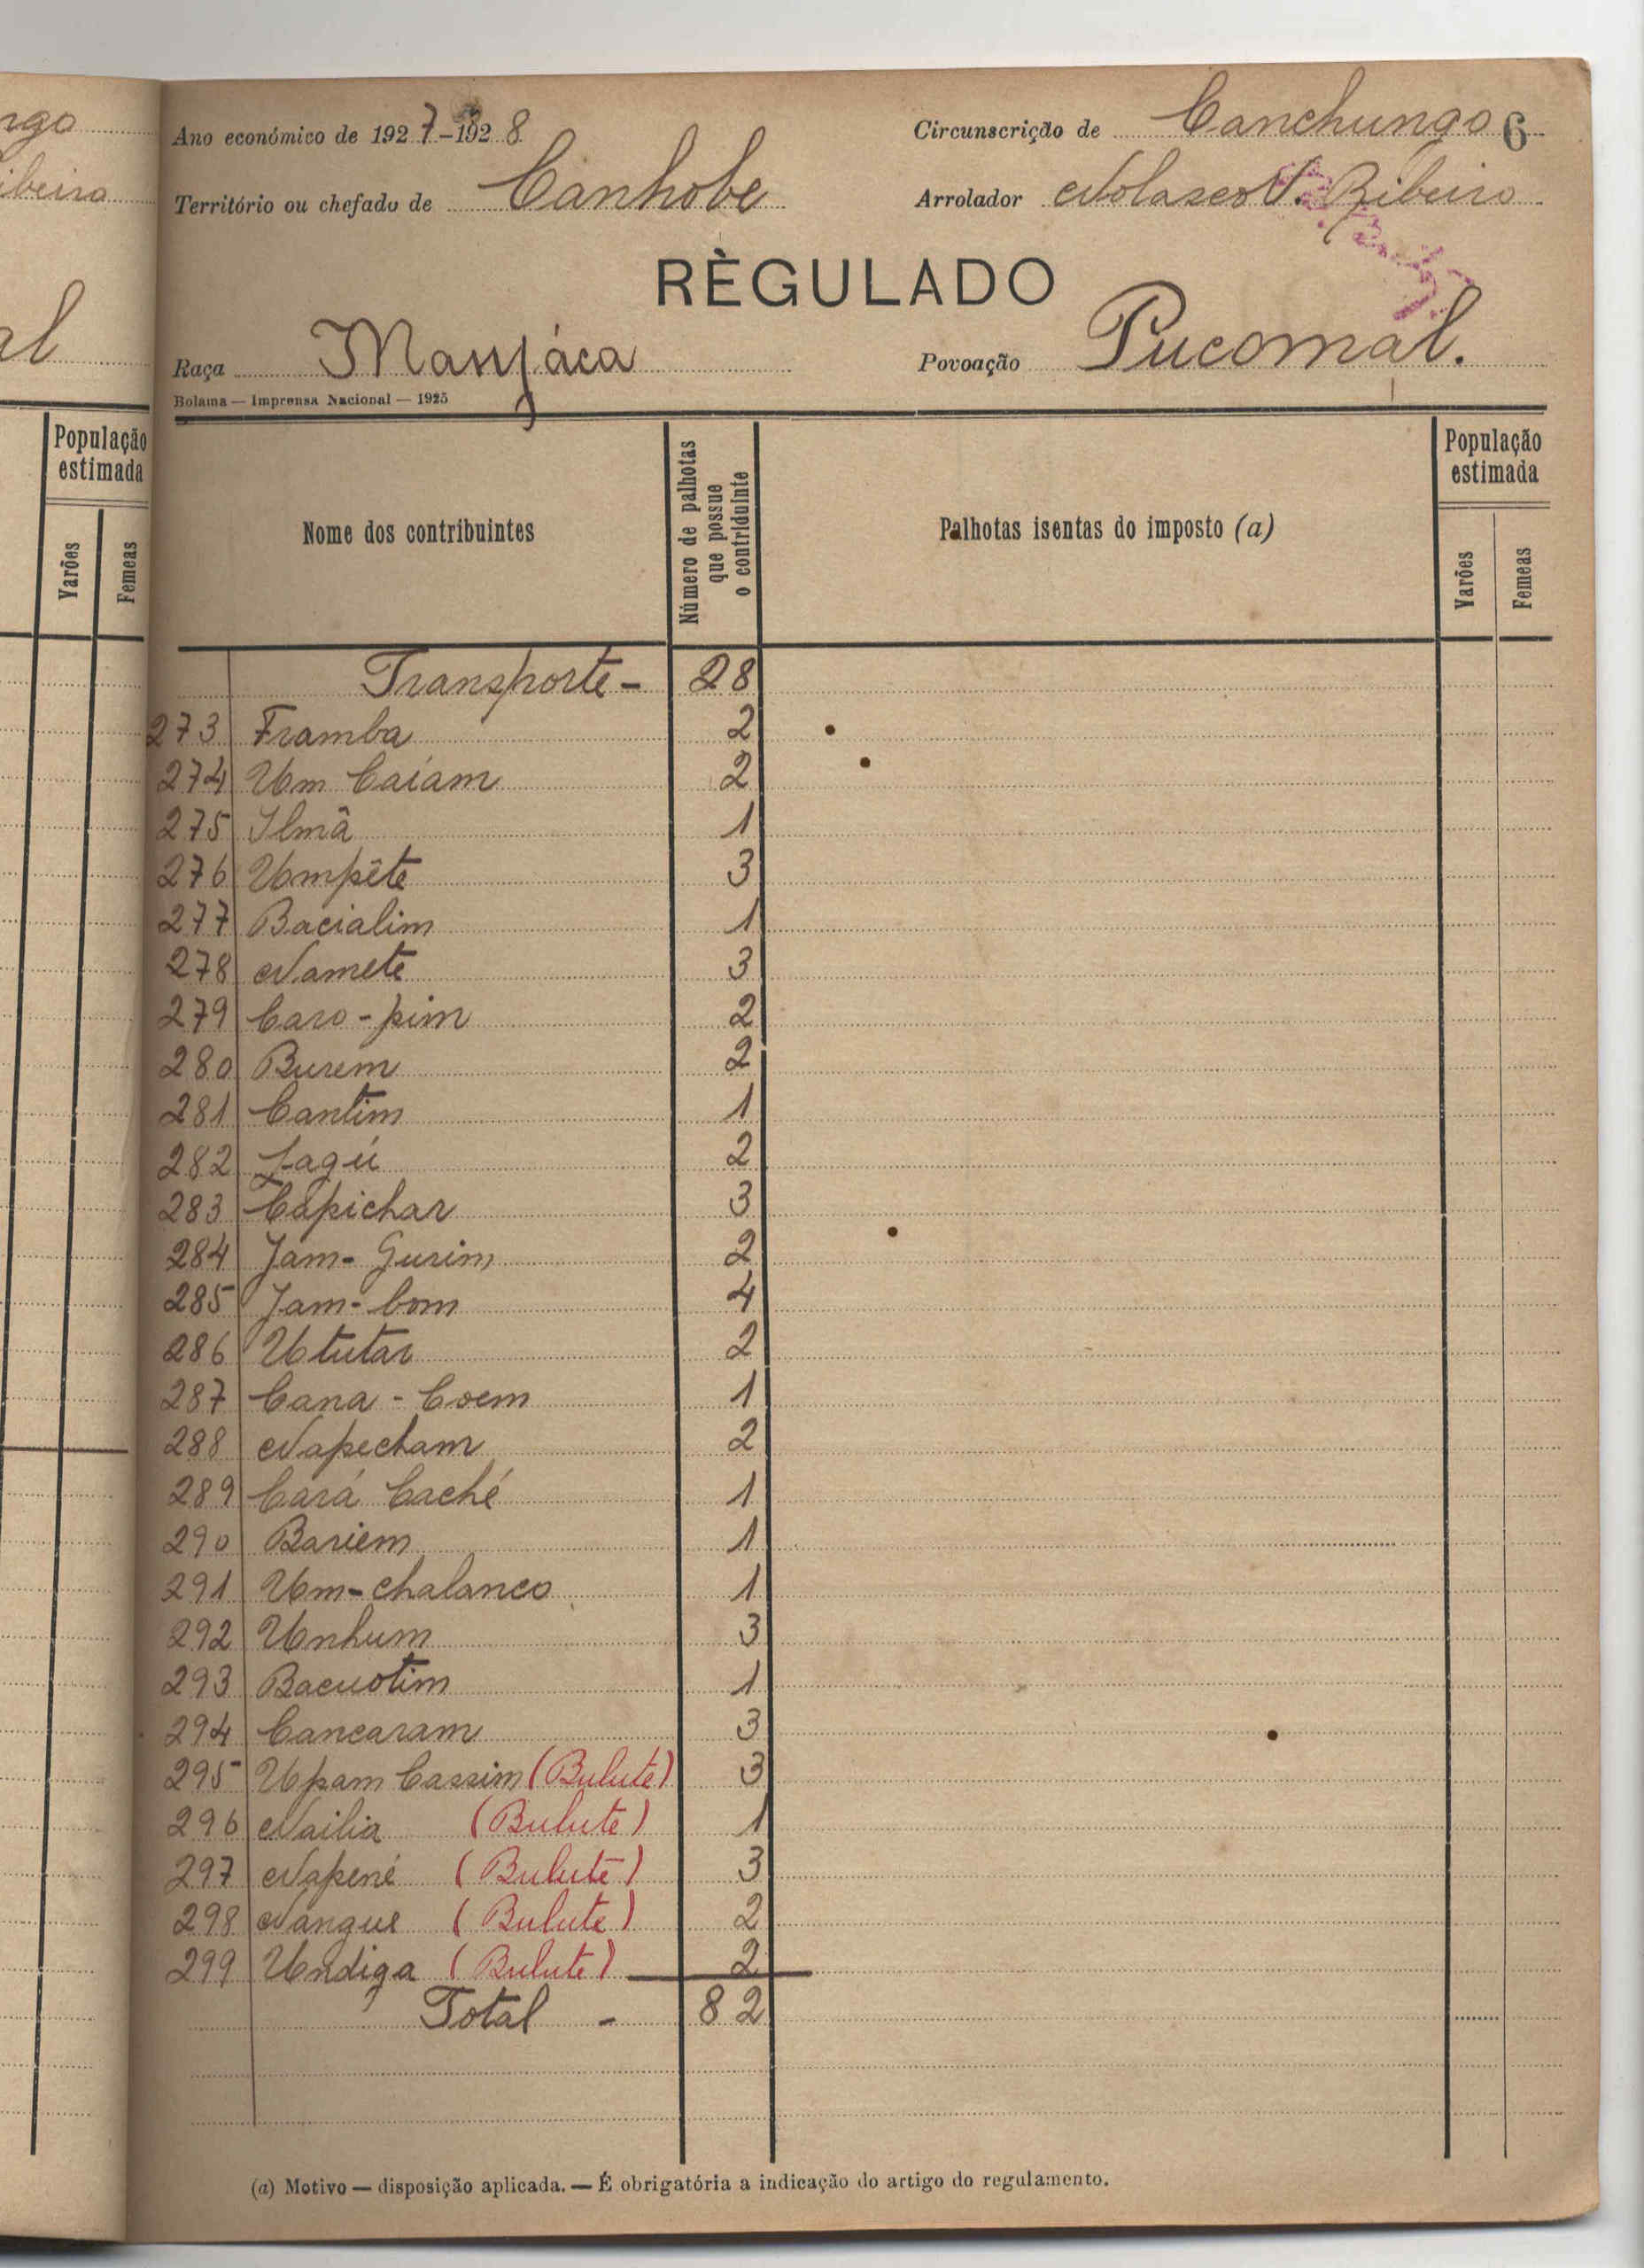 ngo
ibeiro
al
População
estimada
Varões
Femeas
Ano económico de 1927-1928
Circunscrição de Canchungo 6
Território ou chefado de Canhobe
Arrolador Nolasco V. Ribeiro
RÈGULADO
Raça Manjáca
Povoação Pucomal.
Bolama — Imprensa Nacional — 1925
Nome dos contribuintes
Número de palhotas
que possue
o contriduinte
Palhotas isentas do imposto (a)
População
estimada
Varões
Femeas
Transporte - 28
273 Framba 2
274 Um Caíam 2
275 Ilmã 1
276 Umpête 3
277 Bacialim 1
278 Namete 3
279 Caro-pim 2
280 Burem 2
281 Cantim 1
282 Jagú 2
283 Capichar 3
284 Jam-Gurim 2
285 Jam-bom 4
286 Ututar 2
287 Cana-Coem 1
288 Napecham 2
289 Cará Caché 1
290 Bariem 1
291 Um-chalanco 1
292 Unhum 3
293 Bacuotim 1
294 Cancaram 3
295 Upam Cassim (Bulute) 3
296 Nailia (Bulute) 1
297 Napené (Bulute) 3
298 Nangue (Bulute) 2
299 Undiga (Bulute) 2
Total - 82
(a) Motivo — disposição aplicada. — É obrigatória a indicação do artigo do regulamento.